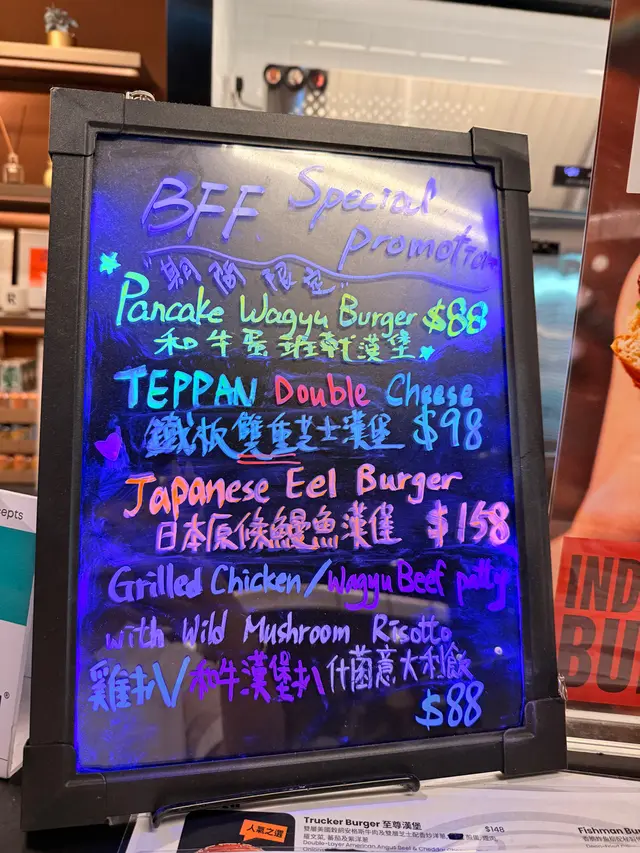 BFF. Special
Promotion
"期間限定"
Pancake Wagyu Burger $88
和牛蛋班戟漢堡
TEPPAN Double Cheese
鐵板雙重芝士漢堡 $98
Japanese Eel Burger
日本原條鰻魚漢堡 $158
Grilled Chicken/Wagyu Beef patty
with Wild Mushroom Risotto
雞扒/和牛漢堡扒什菌意大利飯
$88
epts
R
IND
BU
人氣之選
Trucker Burger 至尊漢堡
$148
Double-Layer American Angus Beef &
Fishman Burg